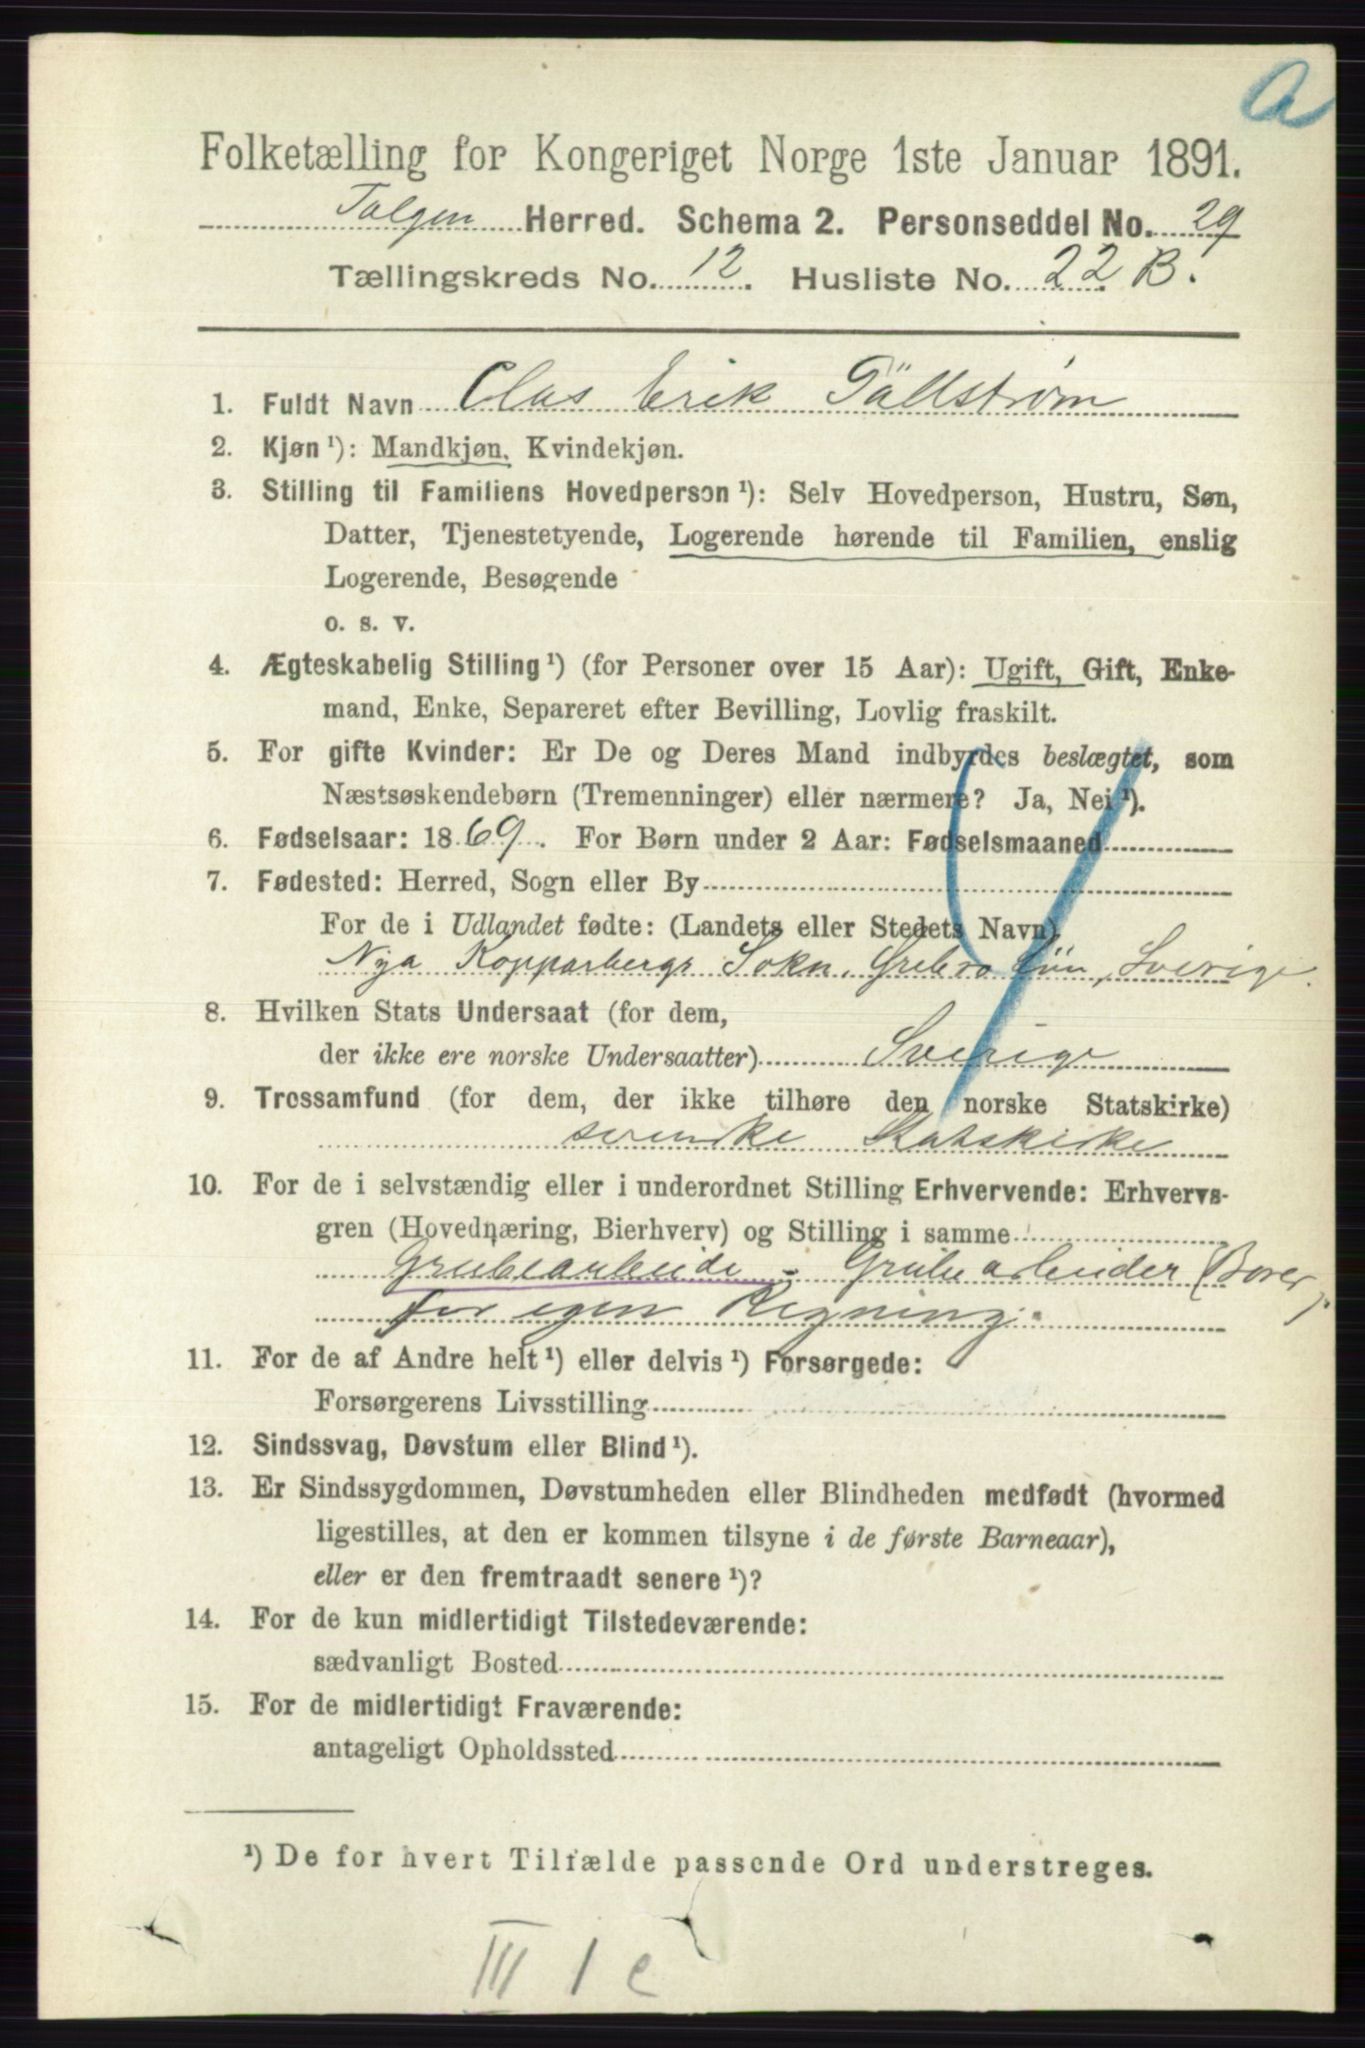 a
Folketælling for Kongeriget Norge 1ste Januar 1891.
Tolgen Herred. Schema 2. Personseddel No. 29
Tællingskreds No. 12. Husliste No. 22 B.
1. Fuldt Navn Clas Erik Tällstrøm
2. Kjøn ¹): Mandkjøn, Kvindekjøn.
3. Stilling til Familiens Hovedperson ¹): Selv Hovedperson, Hustru, Søn,
Datter, Tjenestetyende, Logerende hørende til Familien, enslig
Logerende, Besøgende
o. s. v.
4. Ægteskabelig Stilling ¹) (for Personer over 15 Aar): Ugift, Gift, Enke-
mand, Enke, Separeret efter Bevilling, Lovlig fraskilt.
5. For gifte Kvinder: Er De og Deres Mand indbyrdes beslægtet, som
Næstsøskendebørn (Tremenninger) eller nærmere? Ja, Nei ¹).
6. Fødselsaar: 1869. For Børn under 2 Aar: Fødselsmaaned
7. Fødested: Herred, Sogn eller By
For de i Udlandet fødte: (Landets eller Stedets Navn)
Nya Kopparbergs Sokn, Ørebro Län, Sverige.
8. Hvilken Stats Undersaat (for dem,
der ikke ere norske Undersaatter) Sverige
9. Trossamfund (for dem, der ikke tilhøre den norske Statskirke)
svenske Statskirke
10. For de i selvstændig eller i underordnet Stilling Erhvervende: Erhvervs-
gren (Hovednæring, Bierhverv) og Stilling i samme
Grubearbeide - Grubearbeider (Borer
for egen Regning.
11. For de af Andre helt ¹) eller delvis ¹) Forsørgede:
Forsørgerens Livsstilling
12. Sindssvag, Døvstum eller Blind ¹).
13. Er Sindssygdommen, Døvstumheden eller Blindheden medfødt (hvormed
ligestilles, at den er kommen tilsyne i de første Barneaar),
eller er den fremtraadt senere ¹)?
14. For de kun midlertidigt Tilstedeværende:
sædvanligt Bosted
15. For de midlertidigt Fraværende:
antageligt Opholdssted
¹) De for hvert Tilfælde passende Ord understreges.
III 1 c